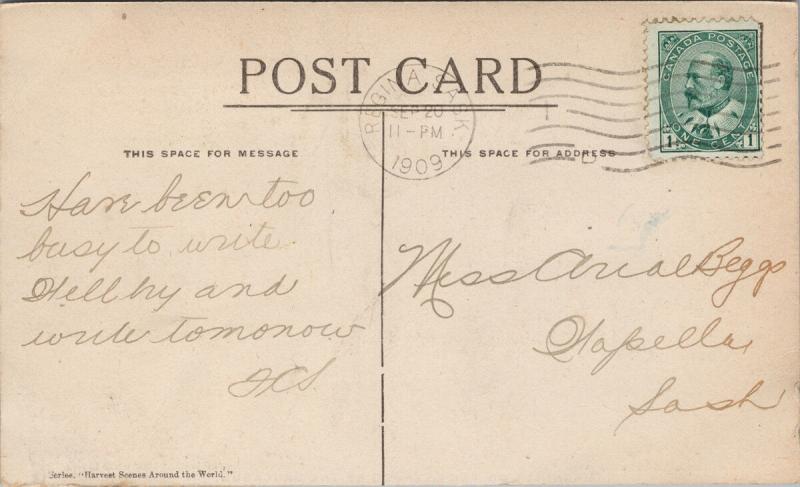 POST CARD
CANADA POSTAGE
1 ONE CENT 1
REGINA SASK
SEP 20
11-PM
1909
THIS SPACE FOR MESSAGE
THIS SPACE FOR ADDRESS
Have been too
busy to write
Will try and
write tomorrow
Miss Beggs
Wapella
Sask
Series. "Harvest Scenes Around the World."